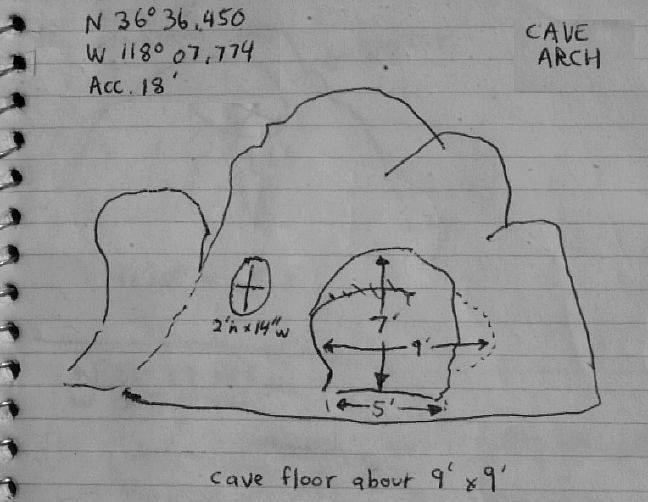 N 36° 36.450
W 118° 07.774
Acc. 18'
CAVE
ARCH
2'h x 14"w
7'
9'
5'
cave floor about 9' x 9'